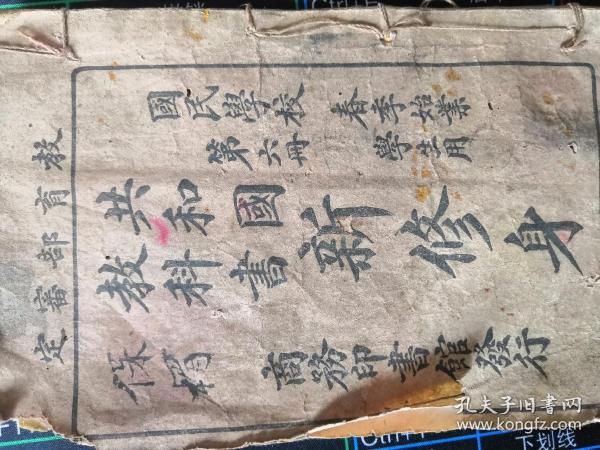 教育部審定
國民學校
春季始業
第六冊
學生用
共和國
教科書
新修身
商務印書館發行
孔夫子旧书网
www.kongfz.com
下划线